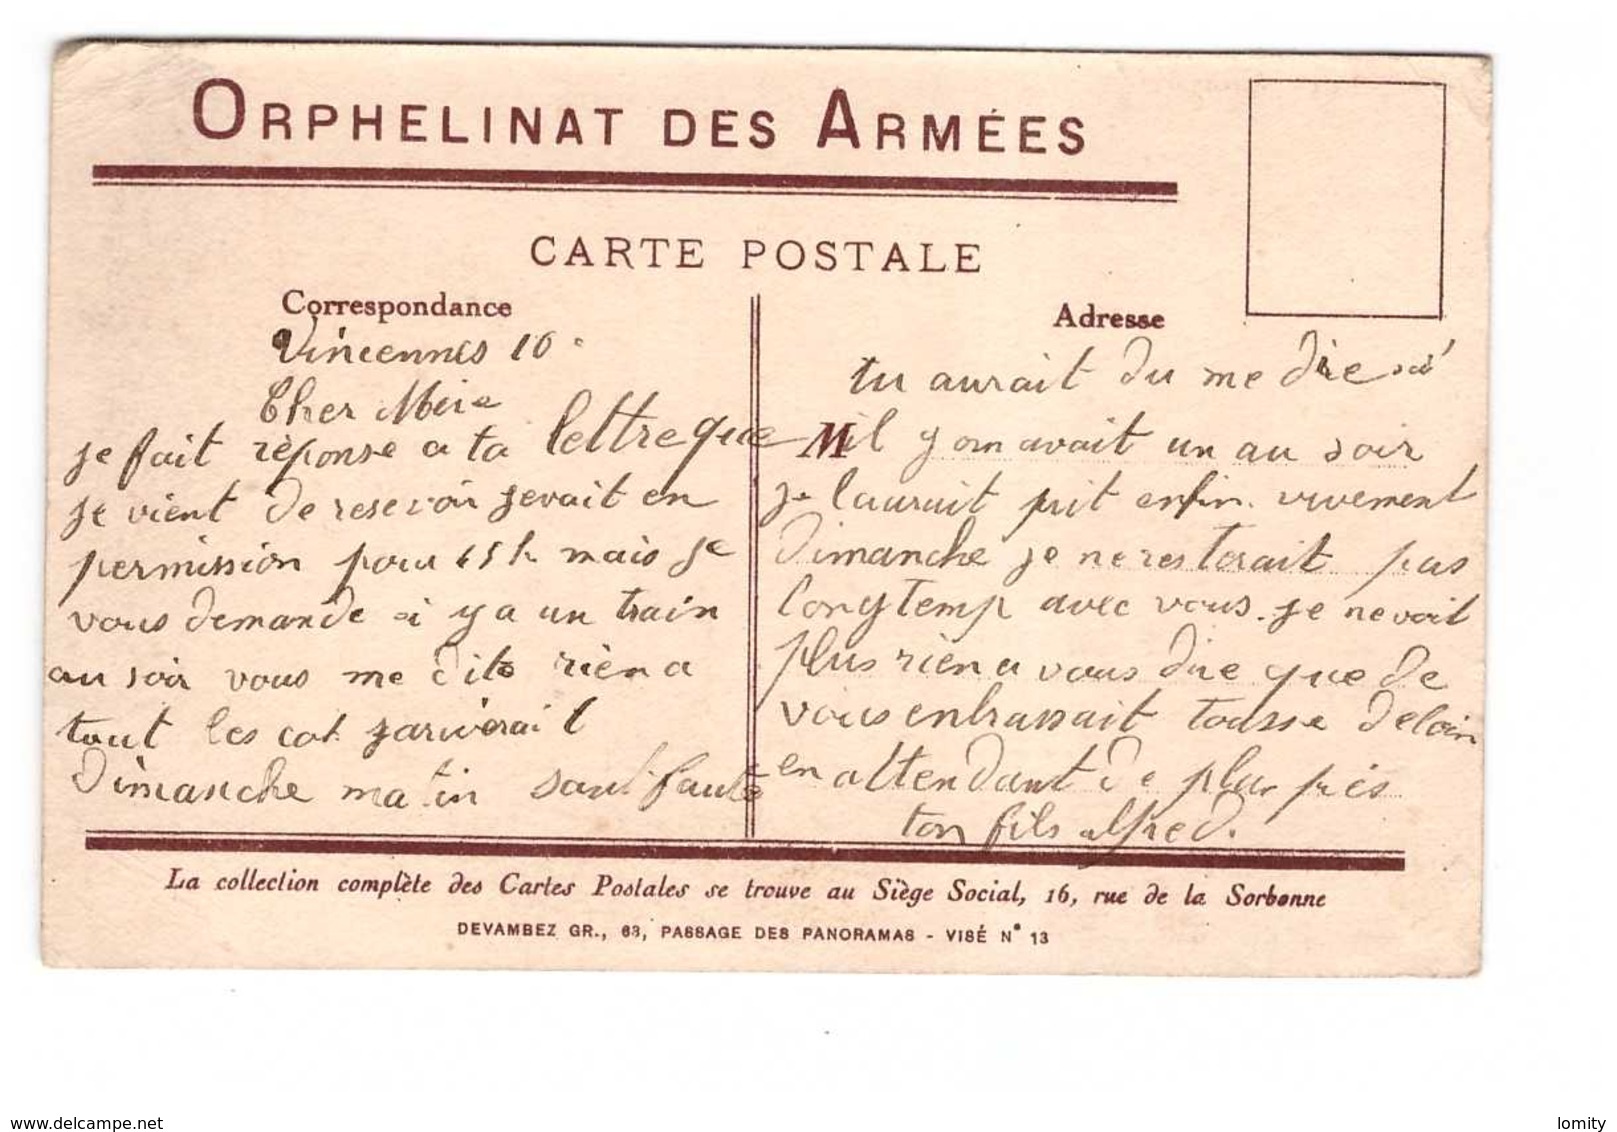 ORPHELINAT DES ARMÉES
CARTE POSTALE
Correspondance
Vincennes 10.
Cher Mere
je fait réponse a ta lettre que
je vient de resevoir jevait en
permission pour 65 h mais je
vous demande si y a un train
au soir vous me dite rien a
tout les cot jariverait
Dimanche matin sant faute
Adresse
tu aurait du me dire si
M
il y om avait un au soir
je laurait prit enfin. vivement
Dimanche je ne resterait pas
longtemp avec vous. je ne voit
plus rien a vous dire que de
vous enbrassait tousse deloin
en attendant de plus près
ton fils alfred.
La collection complète des Cartes Postales se trouve au Siège Social, 16, rue de la Sorbonne
DEVAMBEZ GR., 63, PASSAGE DES PANORAMAS - VISÉ N° 13
www.delcampe.net
lomity